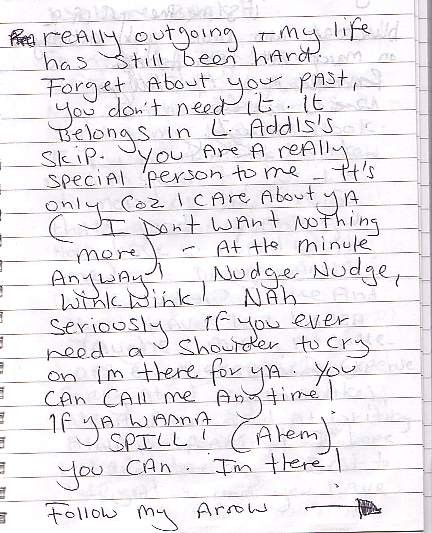 really outgoing + my life
has still been hard.
Forget About your PAST,
you don't need it. It
Belongs in L. Addis's
Skip. You Are A really
special person to me - It's
only Coz I CAre About yA
(I Dont WAnt Nothing
more) - At the minute
AnywAy! Nudge Nudge,
Wink Wink! NAh
Seriously if you ever
need a Shoulder to cry
on im there for yA. You
CAn CAll me Anytime!
If yA WAnnA
SPILL! (Ahem)
you CAn. I'm there!
Follow my Arrow